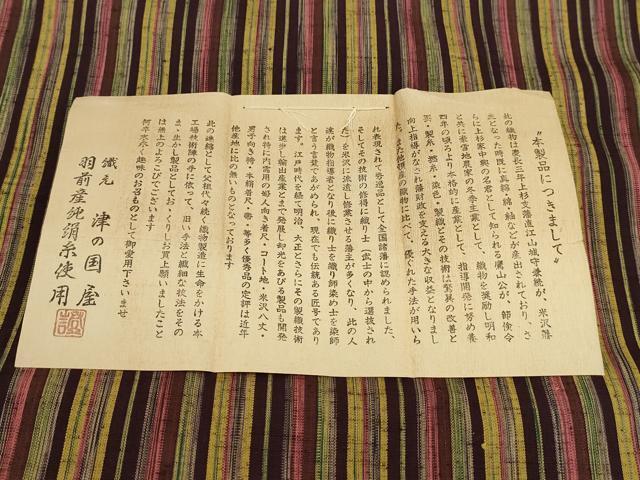 〝本製品につきまして〟
此の織物は慶長三年上杉文藩直江山城守兼続が、米沢藩
主となった時既に真綿・綿・紬などが産出されており、さ
らに上杉家中興の名君として知られる鷹山公が、節倹令
と共に養雪地農家の冬季主業として、織物を奨励し明和
四年の頃ろより本格的に産業として、指導開発に努め養
蚕・製糸・撚糸・染色・製織とその技術は驚異の改善と
向上指導がなされ藩財政を支える大きな収益となりまし
た。また他領産の織物に比べて、優ぐれた手法が用いら
れ表現されて秀逸品として全国諸藩に認められました、
そしてその技術の修得に織り士(武士の中から選抜され
た)を米沢に派遣し修業させる藩主が多くなり、此の人
達が織物指導者となり後に織り士を織り師染め士を染師
と言う言葉であがめられ、現在でも伝統ある匠号であり
ます。江戸時代を経て明治、大正とさらにその製織技術
は進歩し輸出産業とまで発展し御光をあびる製品も開発
され特に内需用の婦人向き着尺・コート地・米沢八丈・
男子向き袴・本絹着尺・帯・等多く優秀品の定評は近年
他産地に比の無いものとなっております
此の連綿として父祖代々続く織物製造に生命をかける本
工場技術陣の手に依って、旧い手法と繊細な技法をその
まゝ生かし製品としておつくりしお買上願いましたこと
は無上のよろこびでございます
何卒末永く趣味のお召ものとして御愛用下さいませ
織元 津の国屋
羽前産純絹糸使用